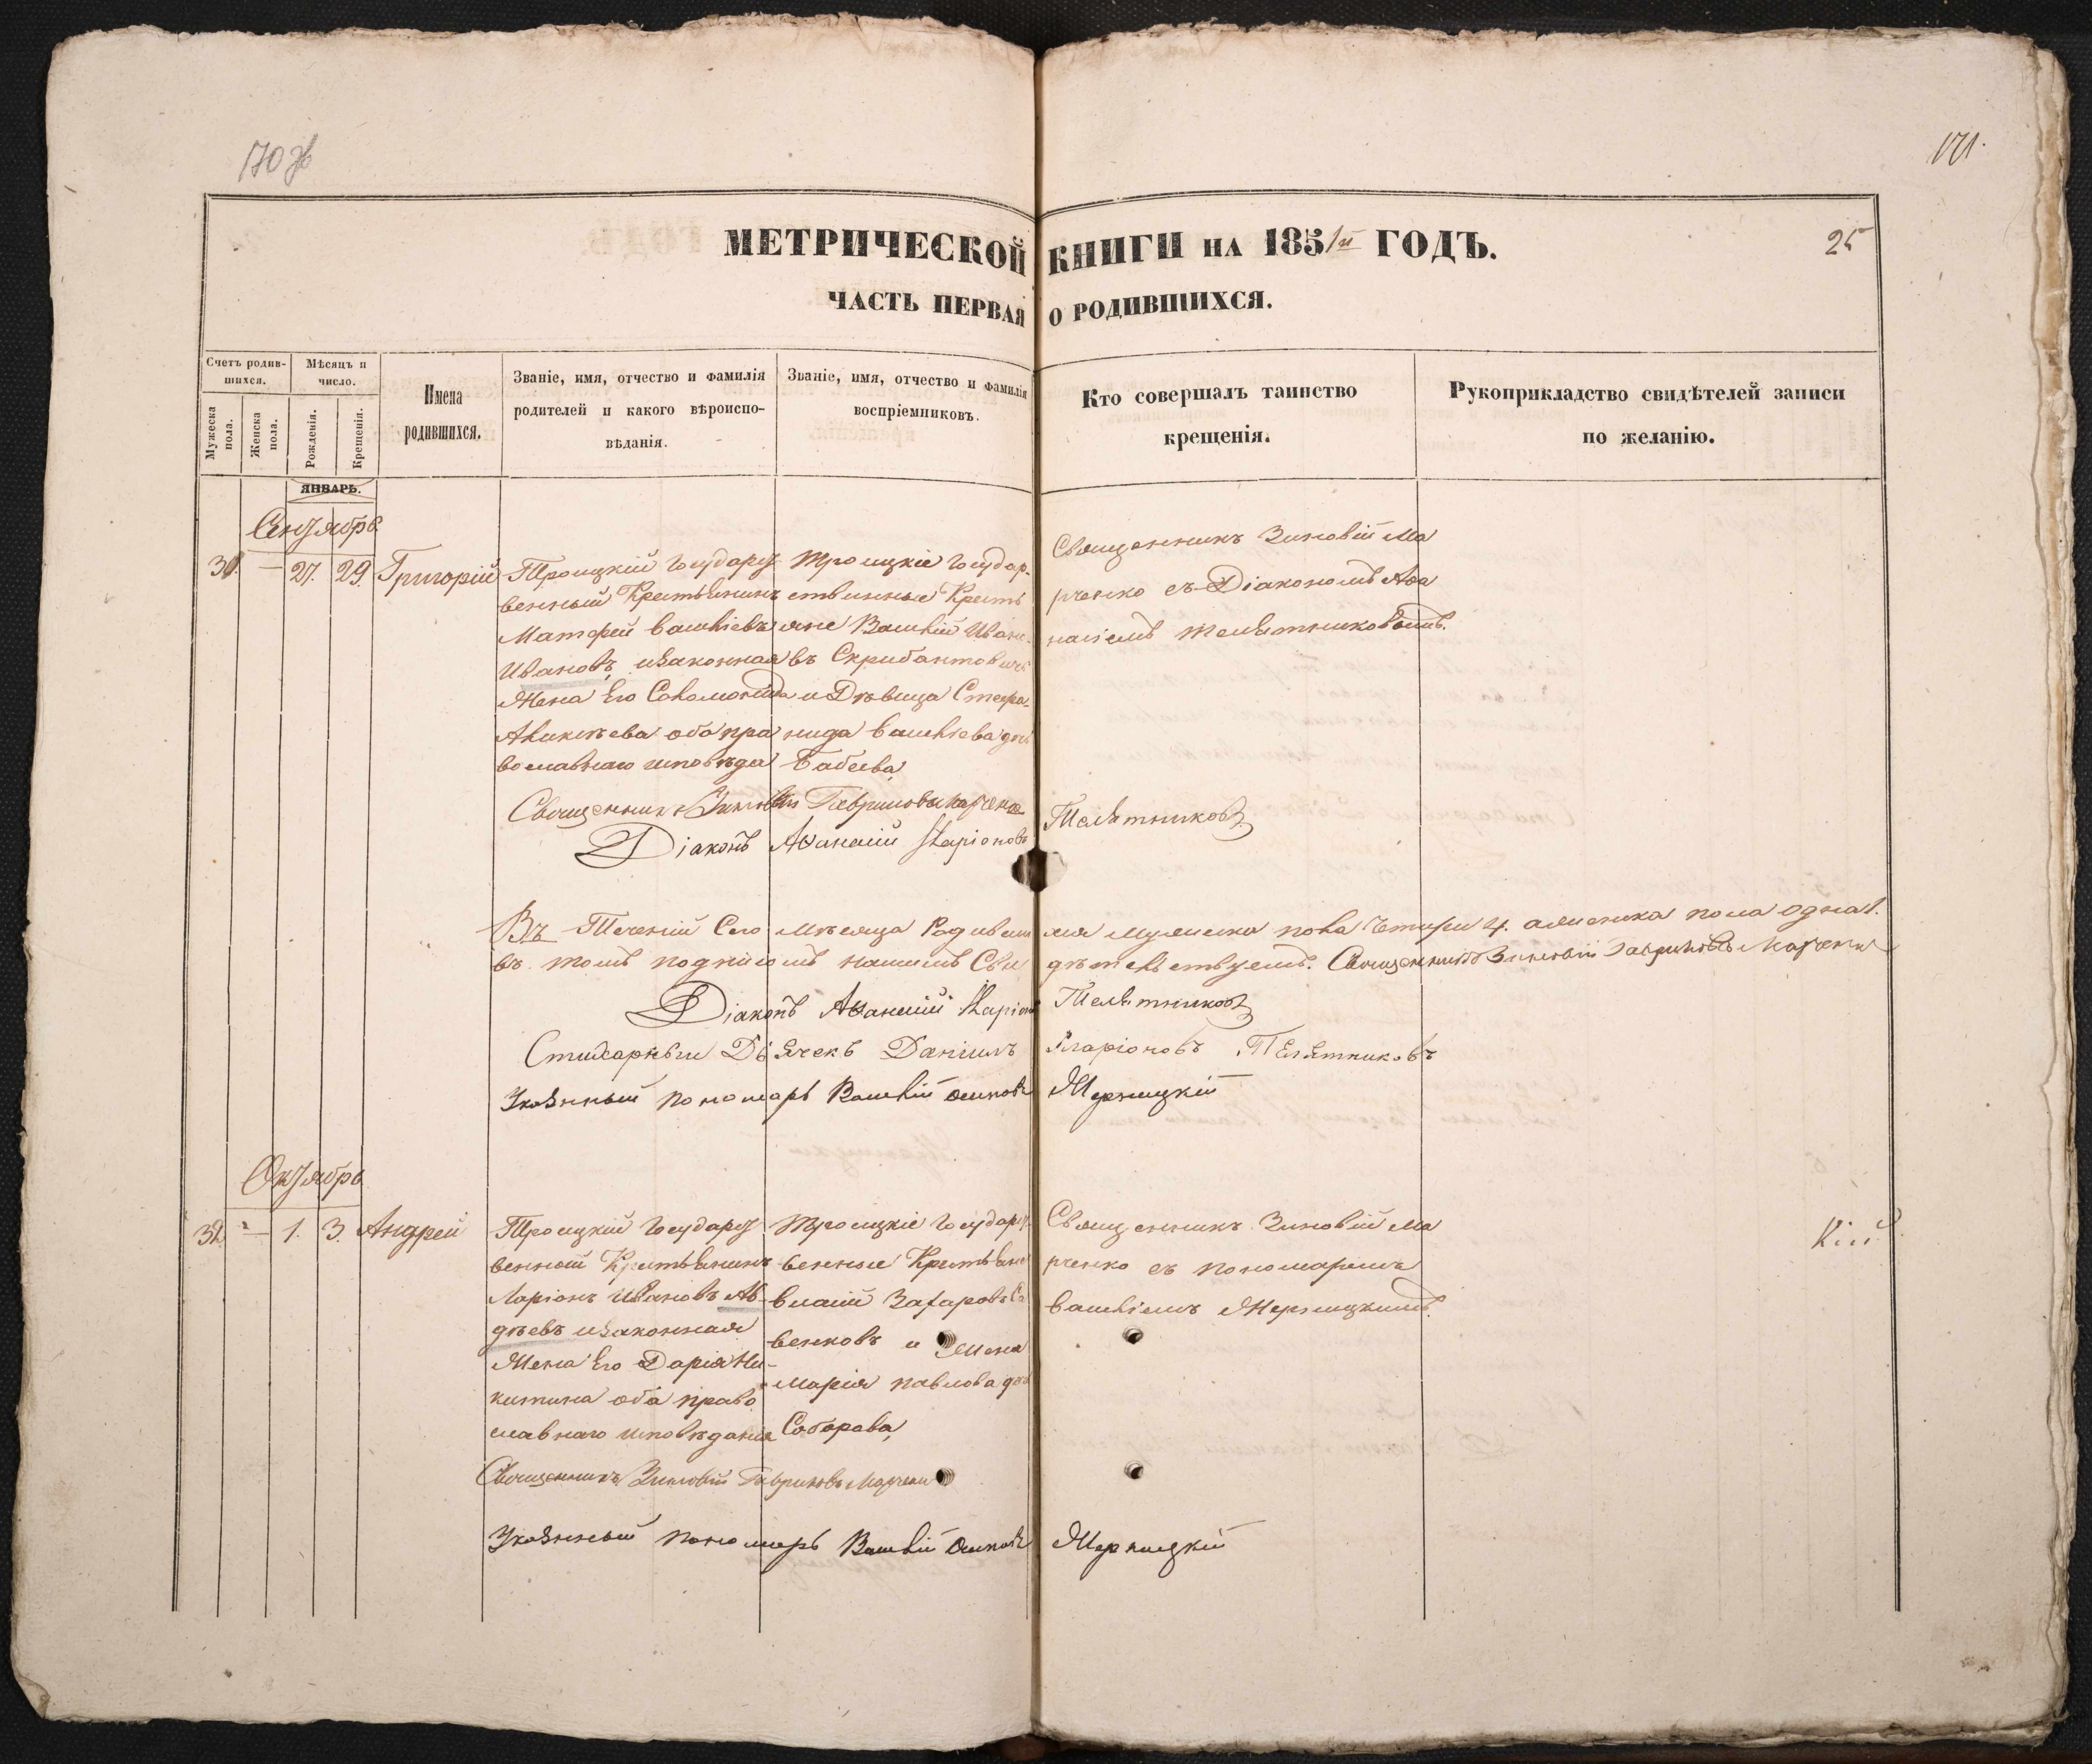 170 об
171.
МЕТРИЧЕСКОЙ КНИГИ НА 1851й ГОДЪ.
25
ЧАСТЬ ПЕРВАЯ О РОДИВШИХСЯ.
Счетъ родив-
шихся.
Мѣсяцъ и
число.
Мужеска
пола.
Женска
пола.
Рожденія.
Крещенія.
Имена
родившихся.
Званіе, имя, отчество и фамилія
родителей и какого вѣроиспо-
вѣданія.
Званіе, имя, отчество и фамилія
воспріемниковъ.
Кто совершалъ таинство
крещенія.
Рукоприкладство свидѣтелей записи
по желанію.
ЯНВАРЬ.
Сентябрь
31. — 27. 29. Григорій
Троицкій Государст
венный Крестьянинъ
Матфей Васильевъ
Ивановъ, изаконная
Жена Его Соломонида
Аликѣева оба пра
вославнаго исповѣда
Троицкіе Государ-
ственные Кресть
яне Василій Ивано-
въ Скрибантовичъ
и Дѣвица Стефа-
нида Васильева дочь
Бабеева
Священникъ Зиновій Ма
рченко съ Діакономъ Афа
насіемъ Телятниковымъ.
Священникъ Зиновій Гавриловъ Марченко
Діаконъ Афанасій Иларіоновъ Телятниковъ
Въ Теченій Сего мѣсяца Родивши мся мужеска пола Четыри 4. аженска пола одна 1.
въ томъ подписомъ нашимъ Сви дѣтельствуемъ. Священникъ Зиновій Гавриловъ Марченко
Діаконъ Афанасій Иларіон Телятниковъ
Стихарный Дьячекъ Даніилъ Иларіоновъ Телятниковъ
Указнный пономарь Василій Осиповъ Жерницкій
Октябрь
32. — 1. 3. Андрей
Троицкій Государст
венной Крестьянинъ
Ларіонъ Ивановъ Ав-
дѣевъ изаконная
Жена Его Дарія Ни-
китина оба право
славнаго исповѣданія
Троицкіе Государст-
венные Крестьяне
Власій Захаровъ Са
венковъ и Жена
Марія Павлова дочь
Соборова,
Священникъ Зиновій Ма
рченко съ пономаремъ
Васильемъ Жерницкимъ.
Священникъ Зиновій Гавриловъ Марченко
Указнный пономарь Василій Осиповъ Жерницкій